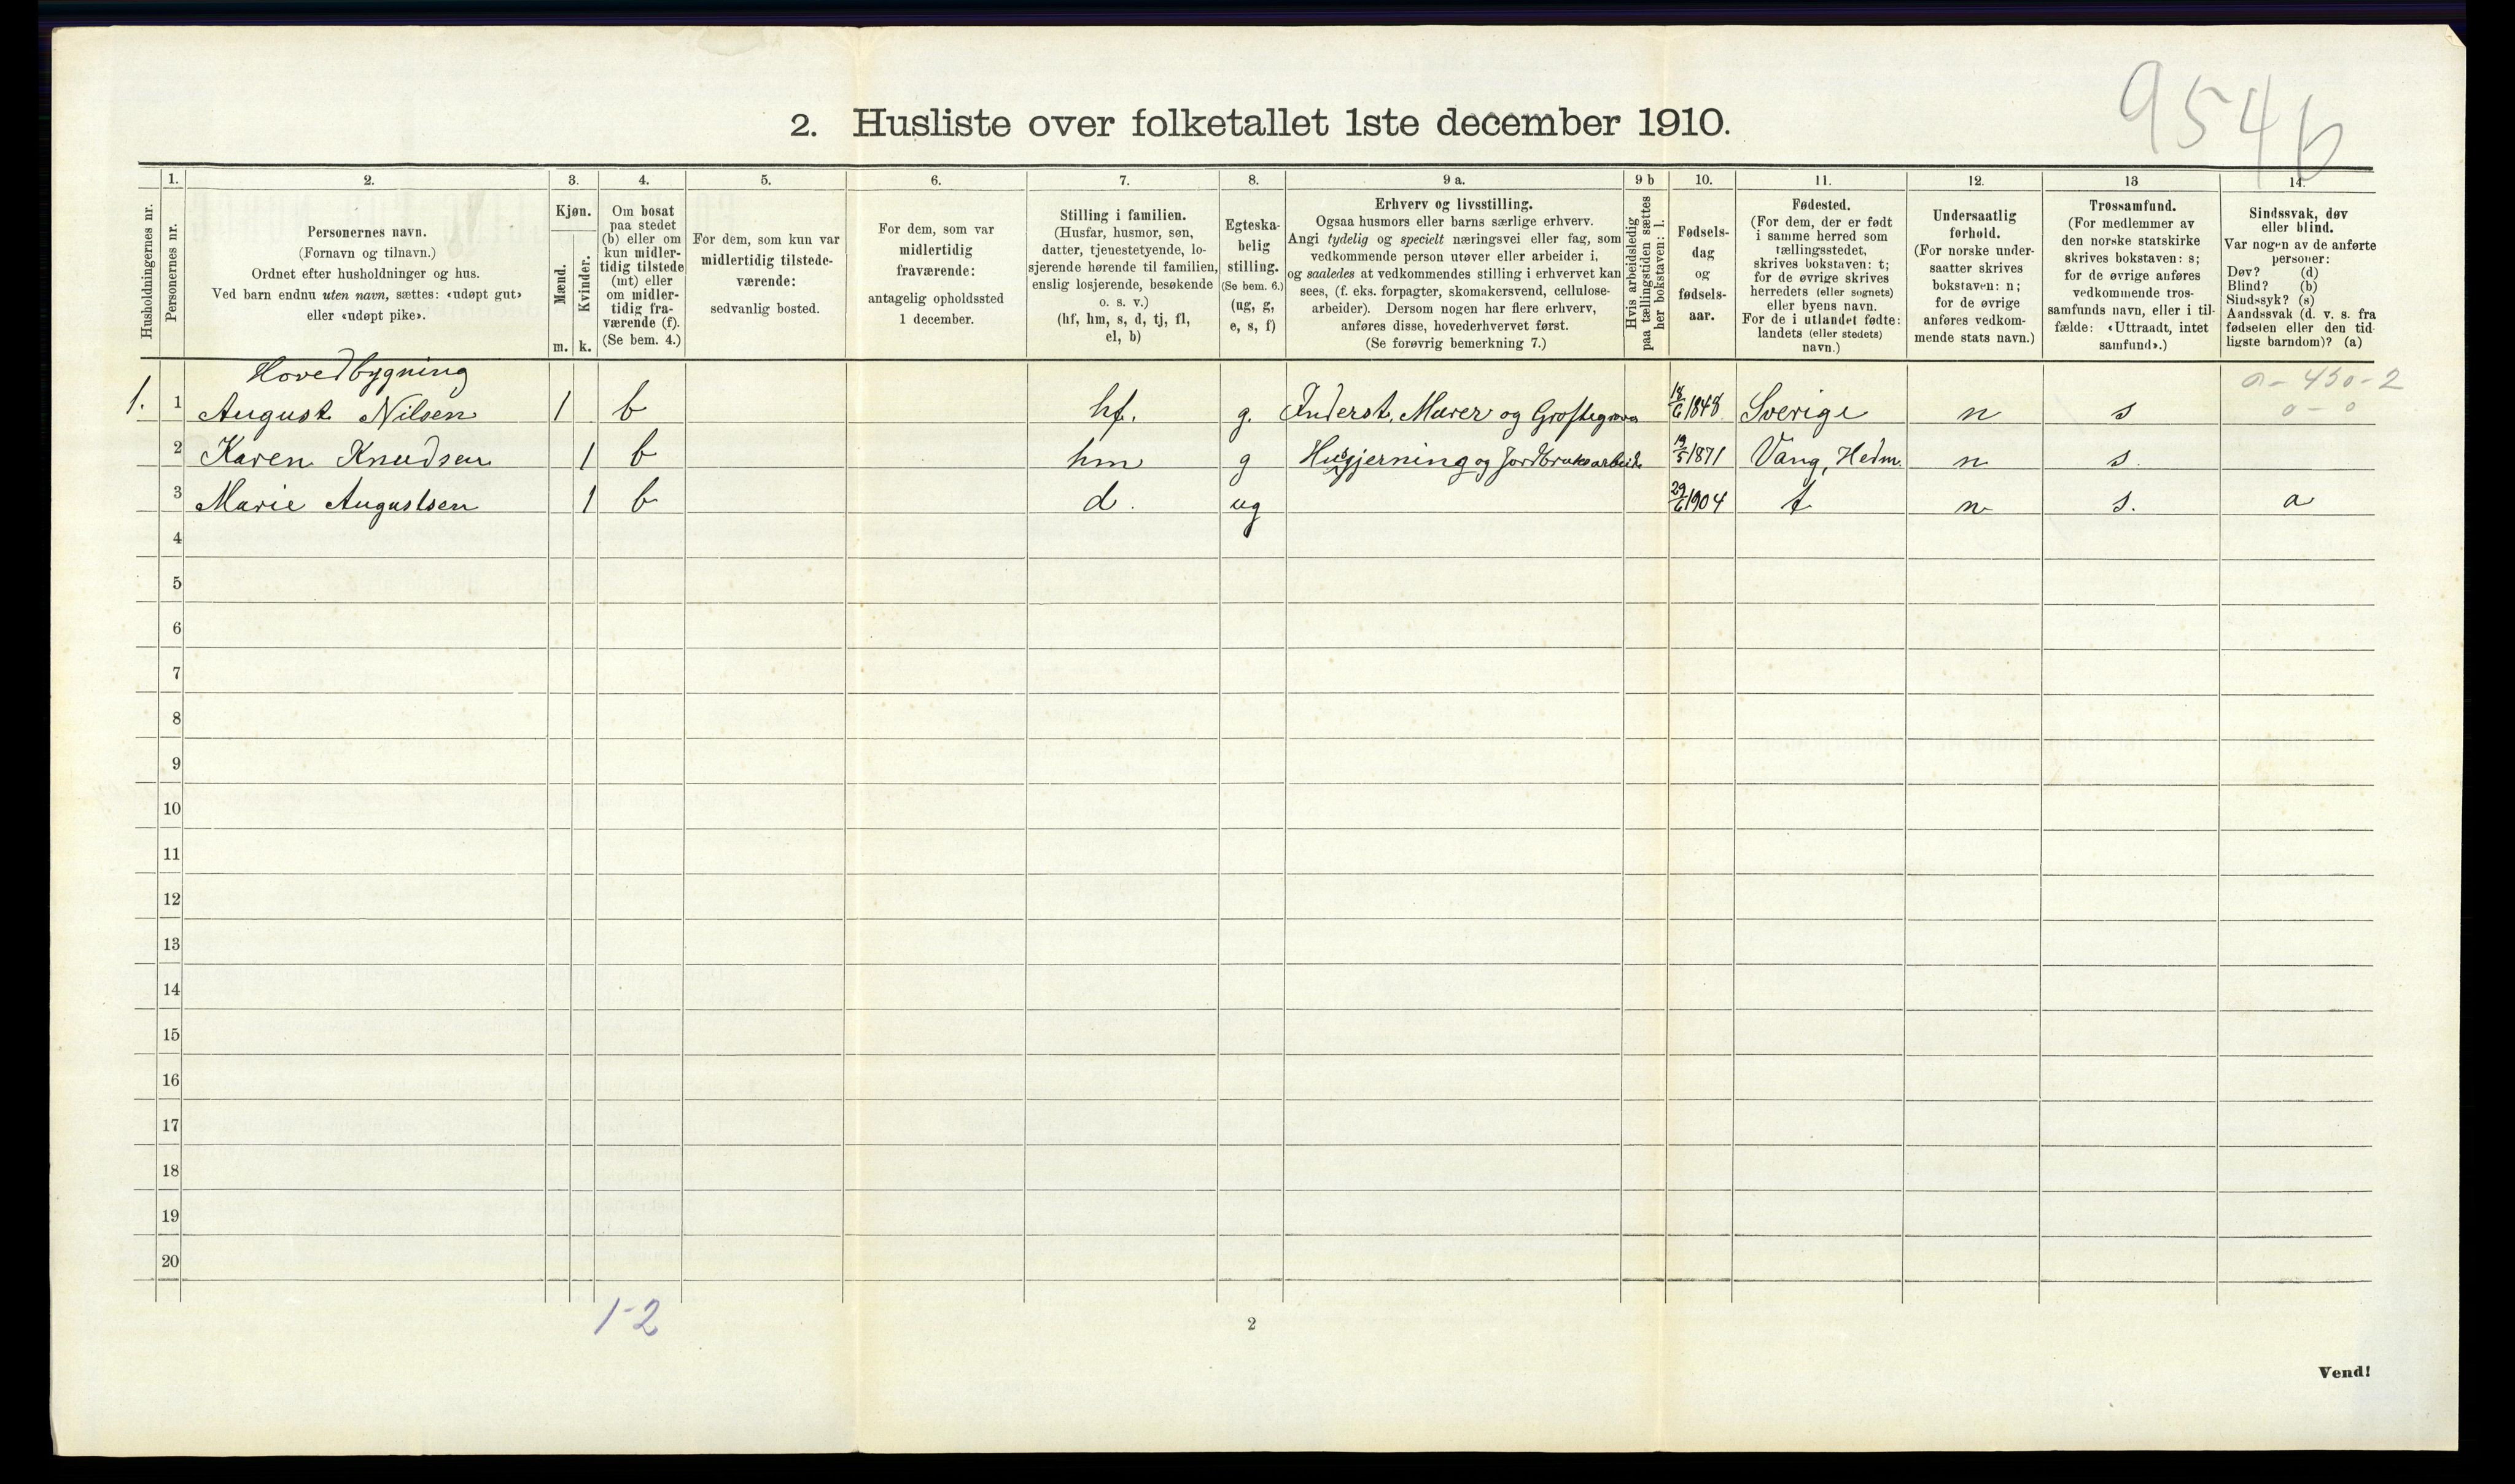 9546
2. Husliste over folketallet 1ste december 1910.
Husholdningernes nr.
1.
Personernes nr.
2.
Personernes navn.
(Fornavn og tilnavn.)
Ordnet efter husholdninger og hus.
Ved barn endnu uten navn, sættes: «udøpt gut»
eller «udøpt pike».
3.
Kjøn.
Mænd.
Kvinder.
m. k.
4.
Om bosat
paa stedet
(b) eller om
kun midler-
tidig tilstede
(mt) eller
om midler-
tidig fra-
værende (f).
(Se bem. 4.)
5.
For dem, som kun var
midlertidig tilstede-
værende:
sedvanlig bosted.
6.
For dem, som var
midlertidig
fraværende:
antagelig opholdssted
1 december.
7.
Stilling i familien.
(Husfar, husmor, søn,
datter, tjenestetyende, lo-
sjerende hørende til familien,
enslig losjerende, besøkende
o. s. v.)
(hf, hm, s, d, tj, fl,
el, b)
8.
Egteska-
belig
stilling.
(Se bem. 6.)
(ug, g,
e, s, f)
9 a.
Erhverv og livsstilling.
Ogsaa husmors eller barns særlige erhverv.
Angi tydelig og specielt næringsvei eller fag, som
vedkommende person utøver eller arbeider i,
og saaledes at vedkommendes stilling i erhvervet kan
sees, (f. eks. forpagter, skomakersvend, cellulose-
arbeider). Dersom nogen har flere erhverv,
anføres disse, hovederhvervet først.
(Se forøvrig bemerkning 7.)
9 b
Hvis arbeidsledig
paa tællingstiden sættes
her bokstaven: l.
10.
Fødsels-
dag
og
fødsels-
aar.
11.
Fødested.
(For dem, der er født
i samme herred som
tællingsstedet,
skrives bokstaven: t;
for de øvrige skrives
herredets (eller sognets)
eller byens navn.
For de i utlandet fødte:
landets (eller stedets)
navn.)
12.
Undersaatlig
forhold.
(For norske under-
saatter skrives
bokstaven: n;
for de øvrige
anføres vedkom-
mende stats navn.)
13
Trossamfund.
(For medlemmer av
den norske statskirke
skrives bokstaven: s;
for de øvrige anføres
vedkommende tros-
samfunds navn, eller i til-
fælde: «Uttraadt, intet
samfund».)
14.
Sindssvak, døv
eller blind.
Var nogen av de anførte
personer:
Døv? (d)
Blind? (b)
Sindssyk? (s)
Aandssvak (d. v. s. fra
fødselen eller den tid-
ligste barndom)? (a)
Hovedbygning
0 - 430 - 2
0 - 0
1. 1 August Nilsen 1 b hf. g. Inderst, Murer og Grøftegraver 18/6 1848 Sverige n s
2 Karen Knudsen 1 b hm g Husgjerning og Jordbruksarbeide 19/5 1871 Vang, Hedm. n s.
3 Marie Augustsen 1 b d. ug 29/6 1904 t n s. a
4
5
6
7
8
9
10
11
12
13
14
15
16
17
18
19
20
1-2
2
Vend!